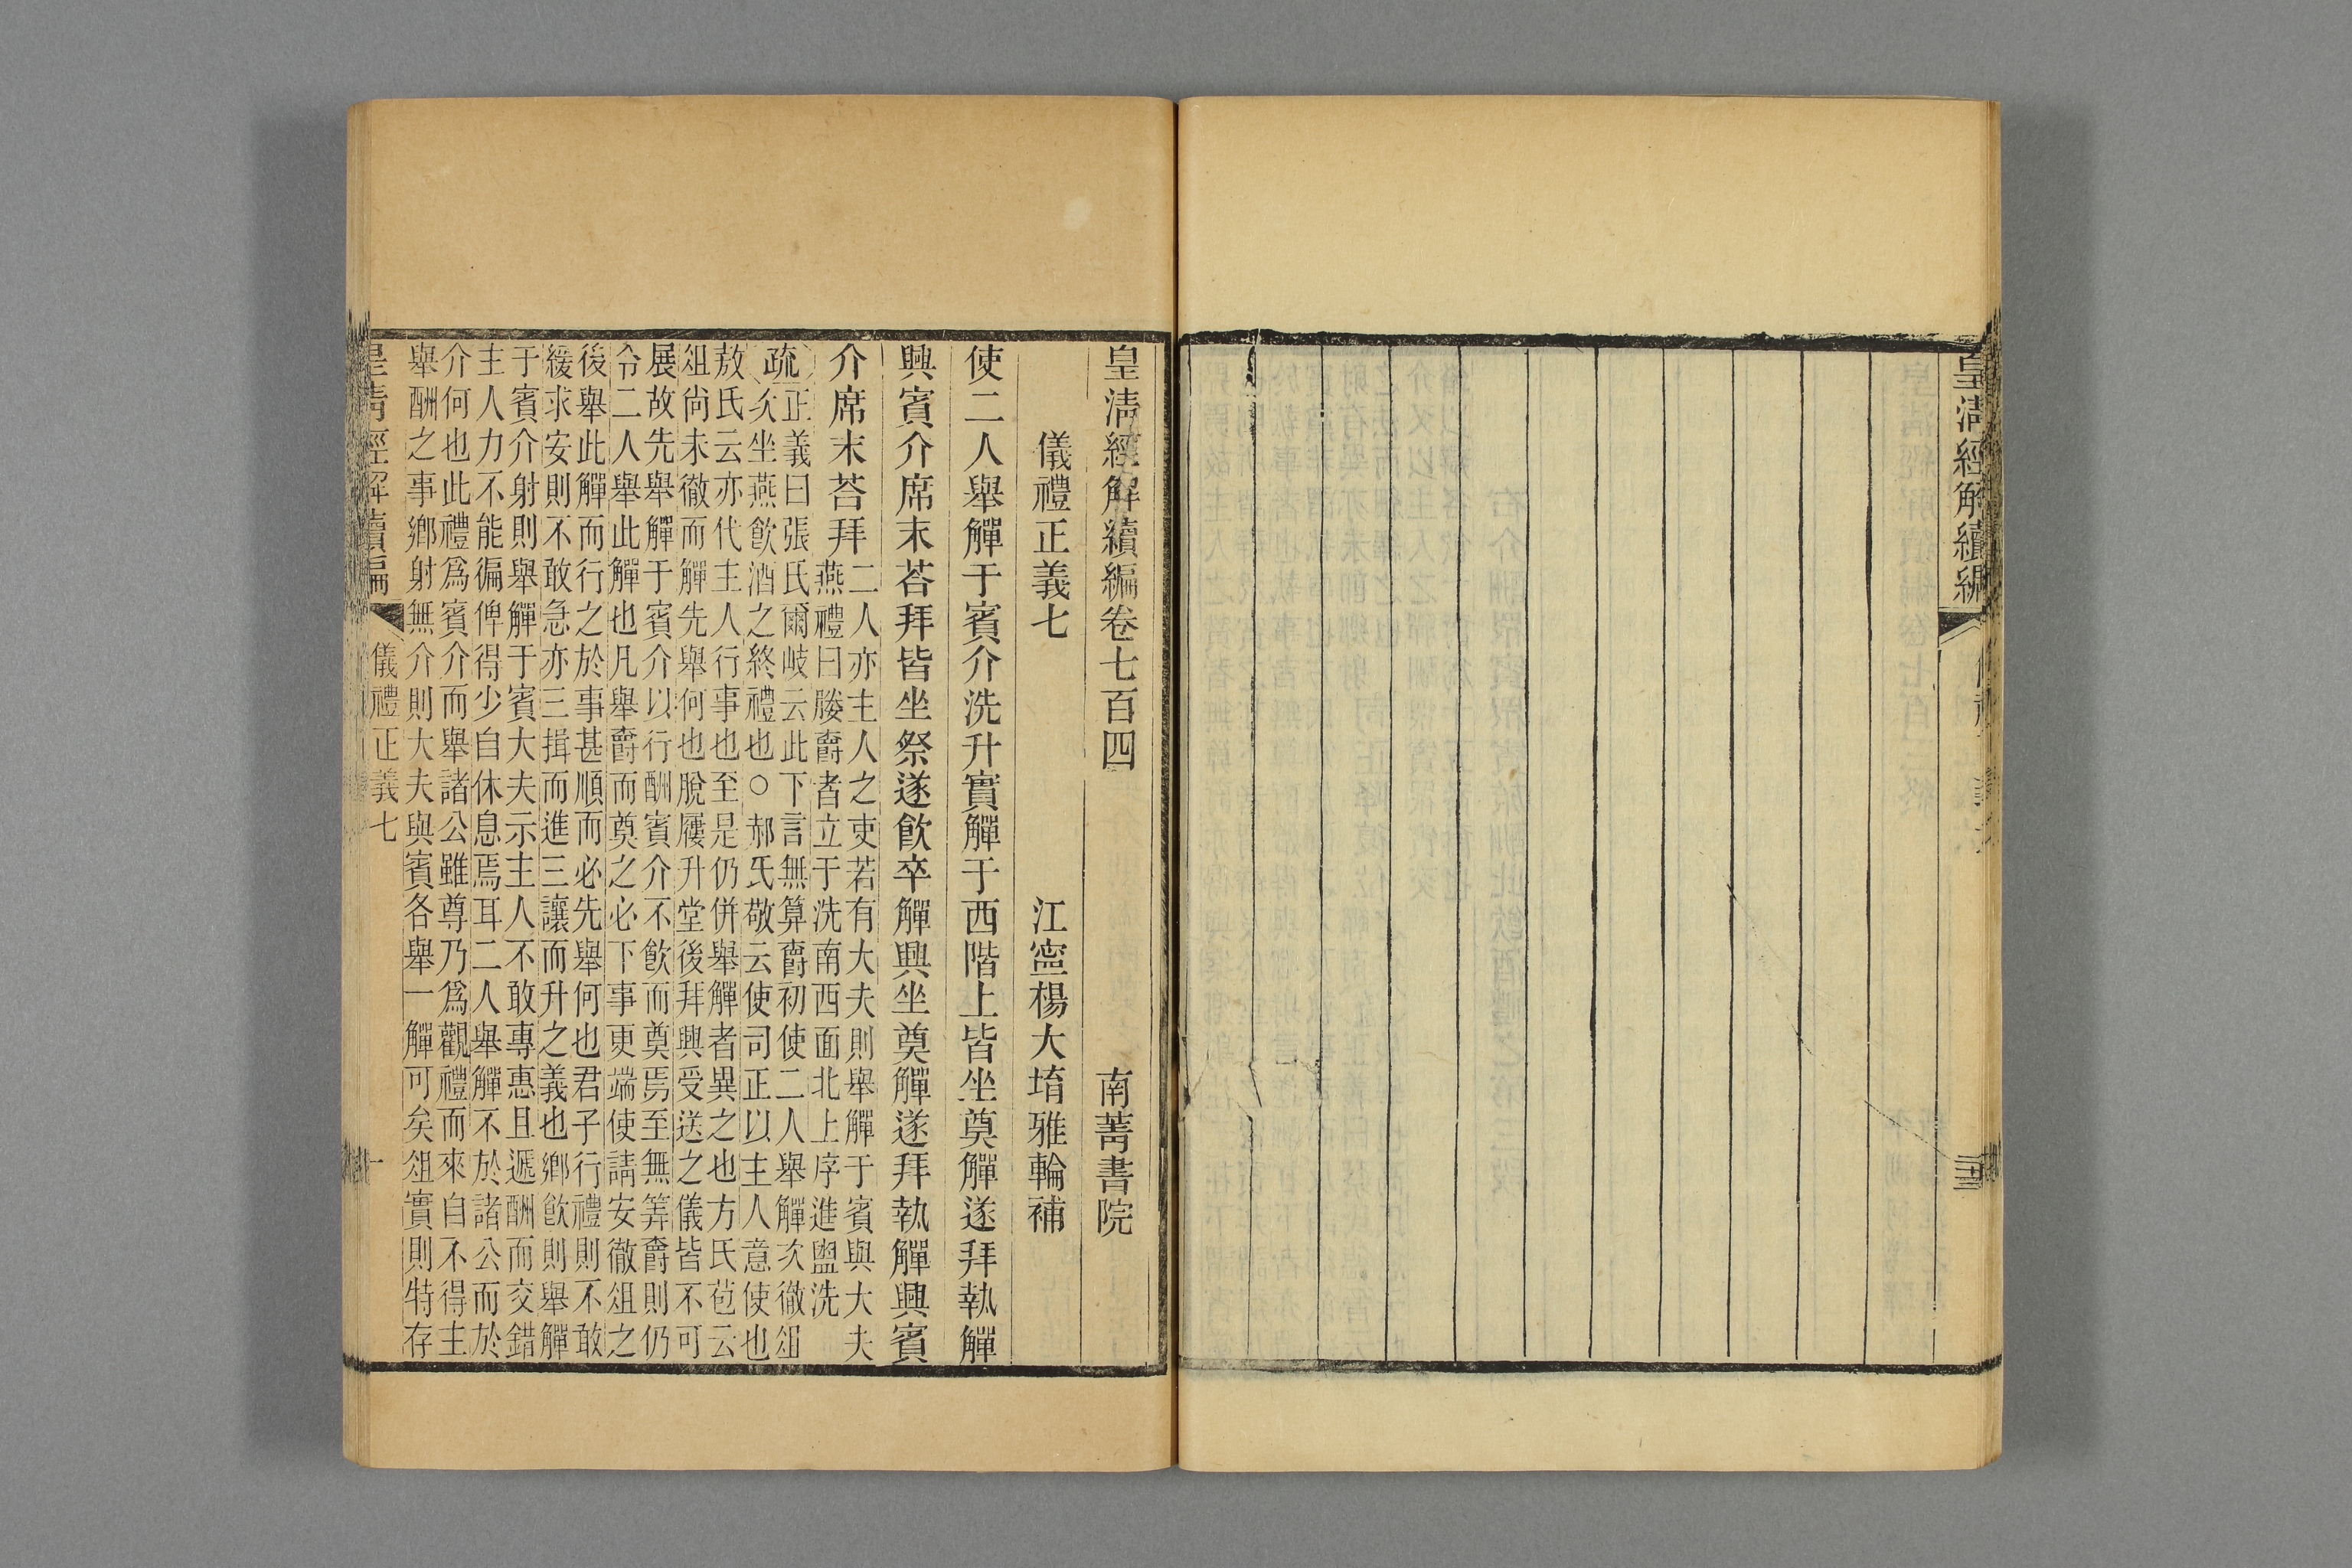 皇清經解續編
皇清經解續編卷七百四
南菁書院
儀禮正義七
江寧楊大堉雅輪補
使二人舉觶于賓介洗升實觶于西階上皆坐奠觶遂拜執觶
興賓介席末荅拜皆坐祭遂飮卒觶興坐奠觶遂拜執觶興賓
介席末荅拜
二人亦主人之吏若有大夫則舉觶于賓與大夫
燕禮曰媵爵者立于洗南西面北上序進盥洗
疏
正義曰張氏爾岐云此下言無算爵初使二人舉觶次徹俎
次坐燕飮酒之終禮也○郝氏敬云使司正以主人意使也
敖氏云亦代主人行事也至是仍併舉觶者異之也方氏苞云
俎尙未徹而觶先舉何也脫屨升堂後拜興受送之儀皆不可
展故先舉觶于賓介以行酬賓介不飮而奠焉至無筭爵則仍
令二人舉此觶也凡舉爵而奠之必下事更端使請安徹俎之
後舉此觶而行之於事甚順而必先舉何也君子行禮則不敢
緩求安則不敢急亦三揖而進三讓而升之義也鄉飮則舉觶
于賓介射則舉觶于賓大夫示主人不敢專惠且遞酬而交錯
主人力不能徧俾得少自休息焉耳二人舉觶不於諸公而於
介何也此禮爲賓介而舉諸公雖尊乃爲觀禮而來自不得主
舉酬之事鄉射無介則大夫與賓各舉一觶可矣俎實則特存
皇清經解續編
儀禮正義七
一